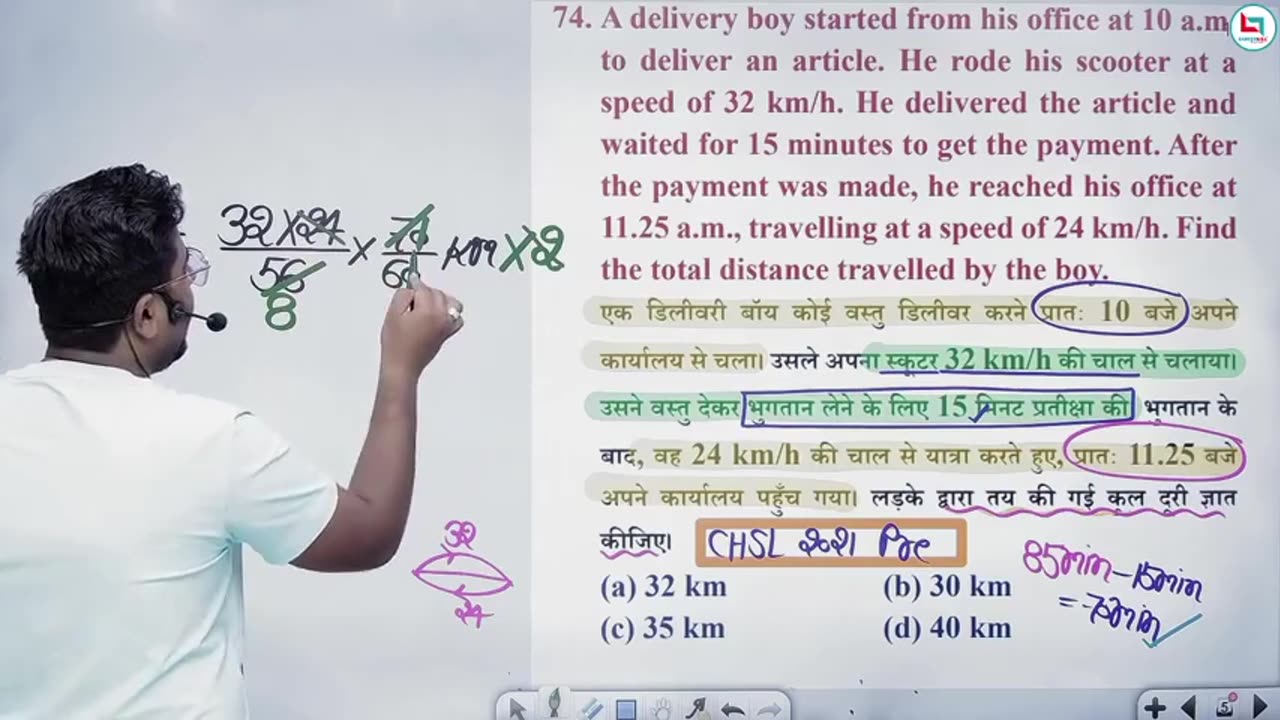 74. A delivery boy started from his office at 10 a.m
to deliver an article. He rode his scooter at a
speed of 32 km/h. He delivered the article and
waited for 15 minutes to get the payment. After
the payment was made, he reached his office at
11.25 a.m., travelling at a speed of 24 km/h. Find
the total distance travelled by the boy.
एक डिलीवरी बॉय कोई वस्तु डिलीवर करने प्रातः 10 बजे अपने
कार्यालय से चला। उसले अपना स्कूटर 32 km/h की चाल से चलाया।
उसने वस्तु देकर भुगतान लेने के लिए 15 मिनट प्रतीक्षा की भुगतान के
बाद, वह 24 km/h की चाल से यात्रा करते हुए, प्रातः 11.25 बजे
अपने कार्यालय पहुँच गया। लड़के द्वारा तय की गई कुल दूरी ज्ञात
कीजिए। CHSL 2021 Pre
(a) 32 km (b) 30 km
(c) 35 km (d) 40 km
32 × 24 × 70 km × 2
56
8
32
24
85min - 15min
= 70min
5